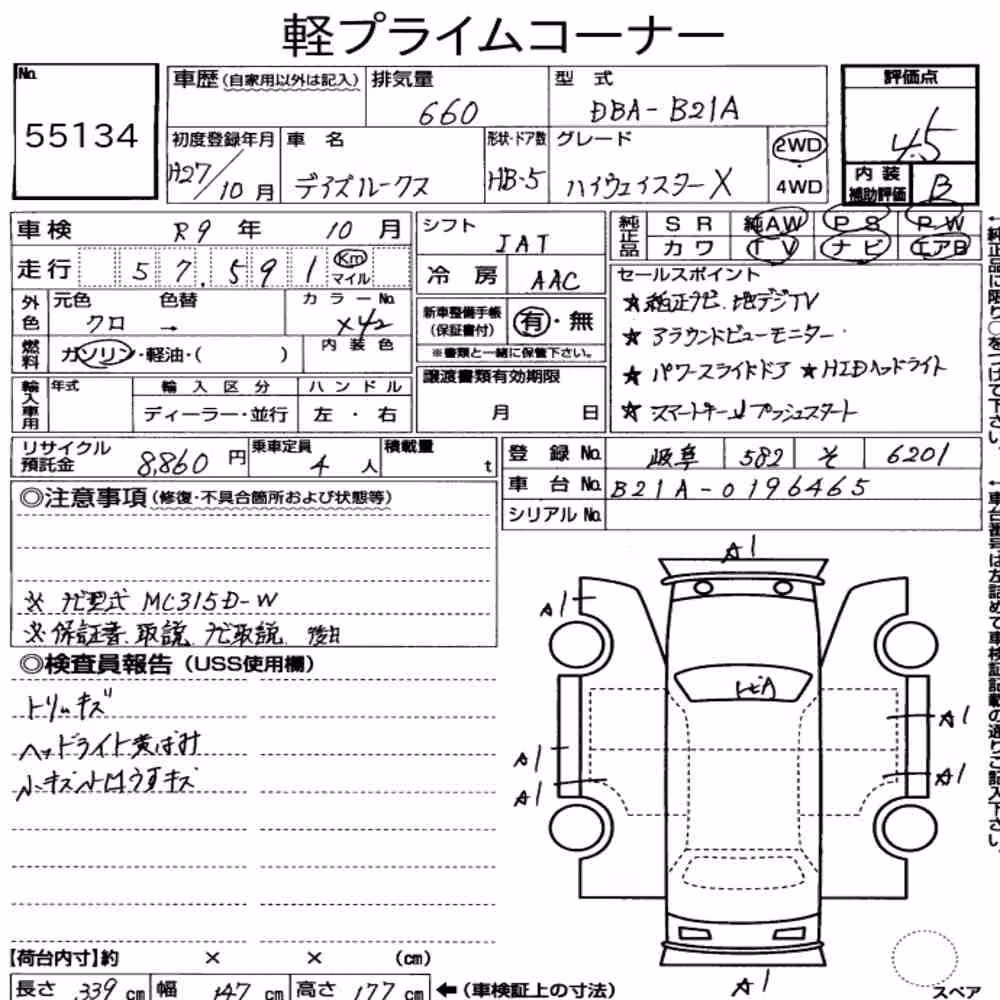 軽プライムコーナー
No.
55134
車歴(自家用以外は記入)
排気量
660
型 式
DBA-B21A
評価点
4.5
内装
補助評価
B
初度登録年月
H27/10月
車 名
デイズルークス
形状・ドア数
HB-5
グレード
ハイウェイスターX
2WD
4WD
車検 R9 年 10 月
走行 57,591 Km
マイル
シフト
IAT
冷 房 AAC
純正品
SR 純AW PS PW
カワ TV ナビ エアB
外色
元色 色替 カラーNo.
クロ → X42
燃料
ガソリン・軽油・( )
内装色
新車整備手帳
(保証書付)
有・無
※書類と一緒に保管下さい。
輸入車用
年式
輸入区分
ハンドル
ディーラー・並行
左・右
譲渡書類有効期限
月 日
セールスポイント
★純正ナビ、地デジTV
★アラウンドビューモニター
★パワースライドドア ★HIDヘッドライト
★スマートキー プッシュスタート
リサイクル
預託金
8,860円
乗車定員
4人
積載量
t
登録No. 岐阜 582 そ 6201
車台No. B21A-0196465
シリアルNo.
◎注意事項(修復・不具合箇所および状態等)
※ナビ型式 MC315D-W
※保証書、取説、ナビ取説、後日
◎検査員報告(USS使用欄)
トリムキズ
ヘッドライト黄ばみ
小キズ
A1
A1
A1
A1
A1
A1
A1
スペア
【荷台内寸】約 × × (cm)
長さ 339 cm 幅 147 cm 高さ 177 cm ←(車検証上の寸法)
←純正品に限り○をつけて下さい。
←車台番号は左詰めで車検証記載の通りご記入下さい。